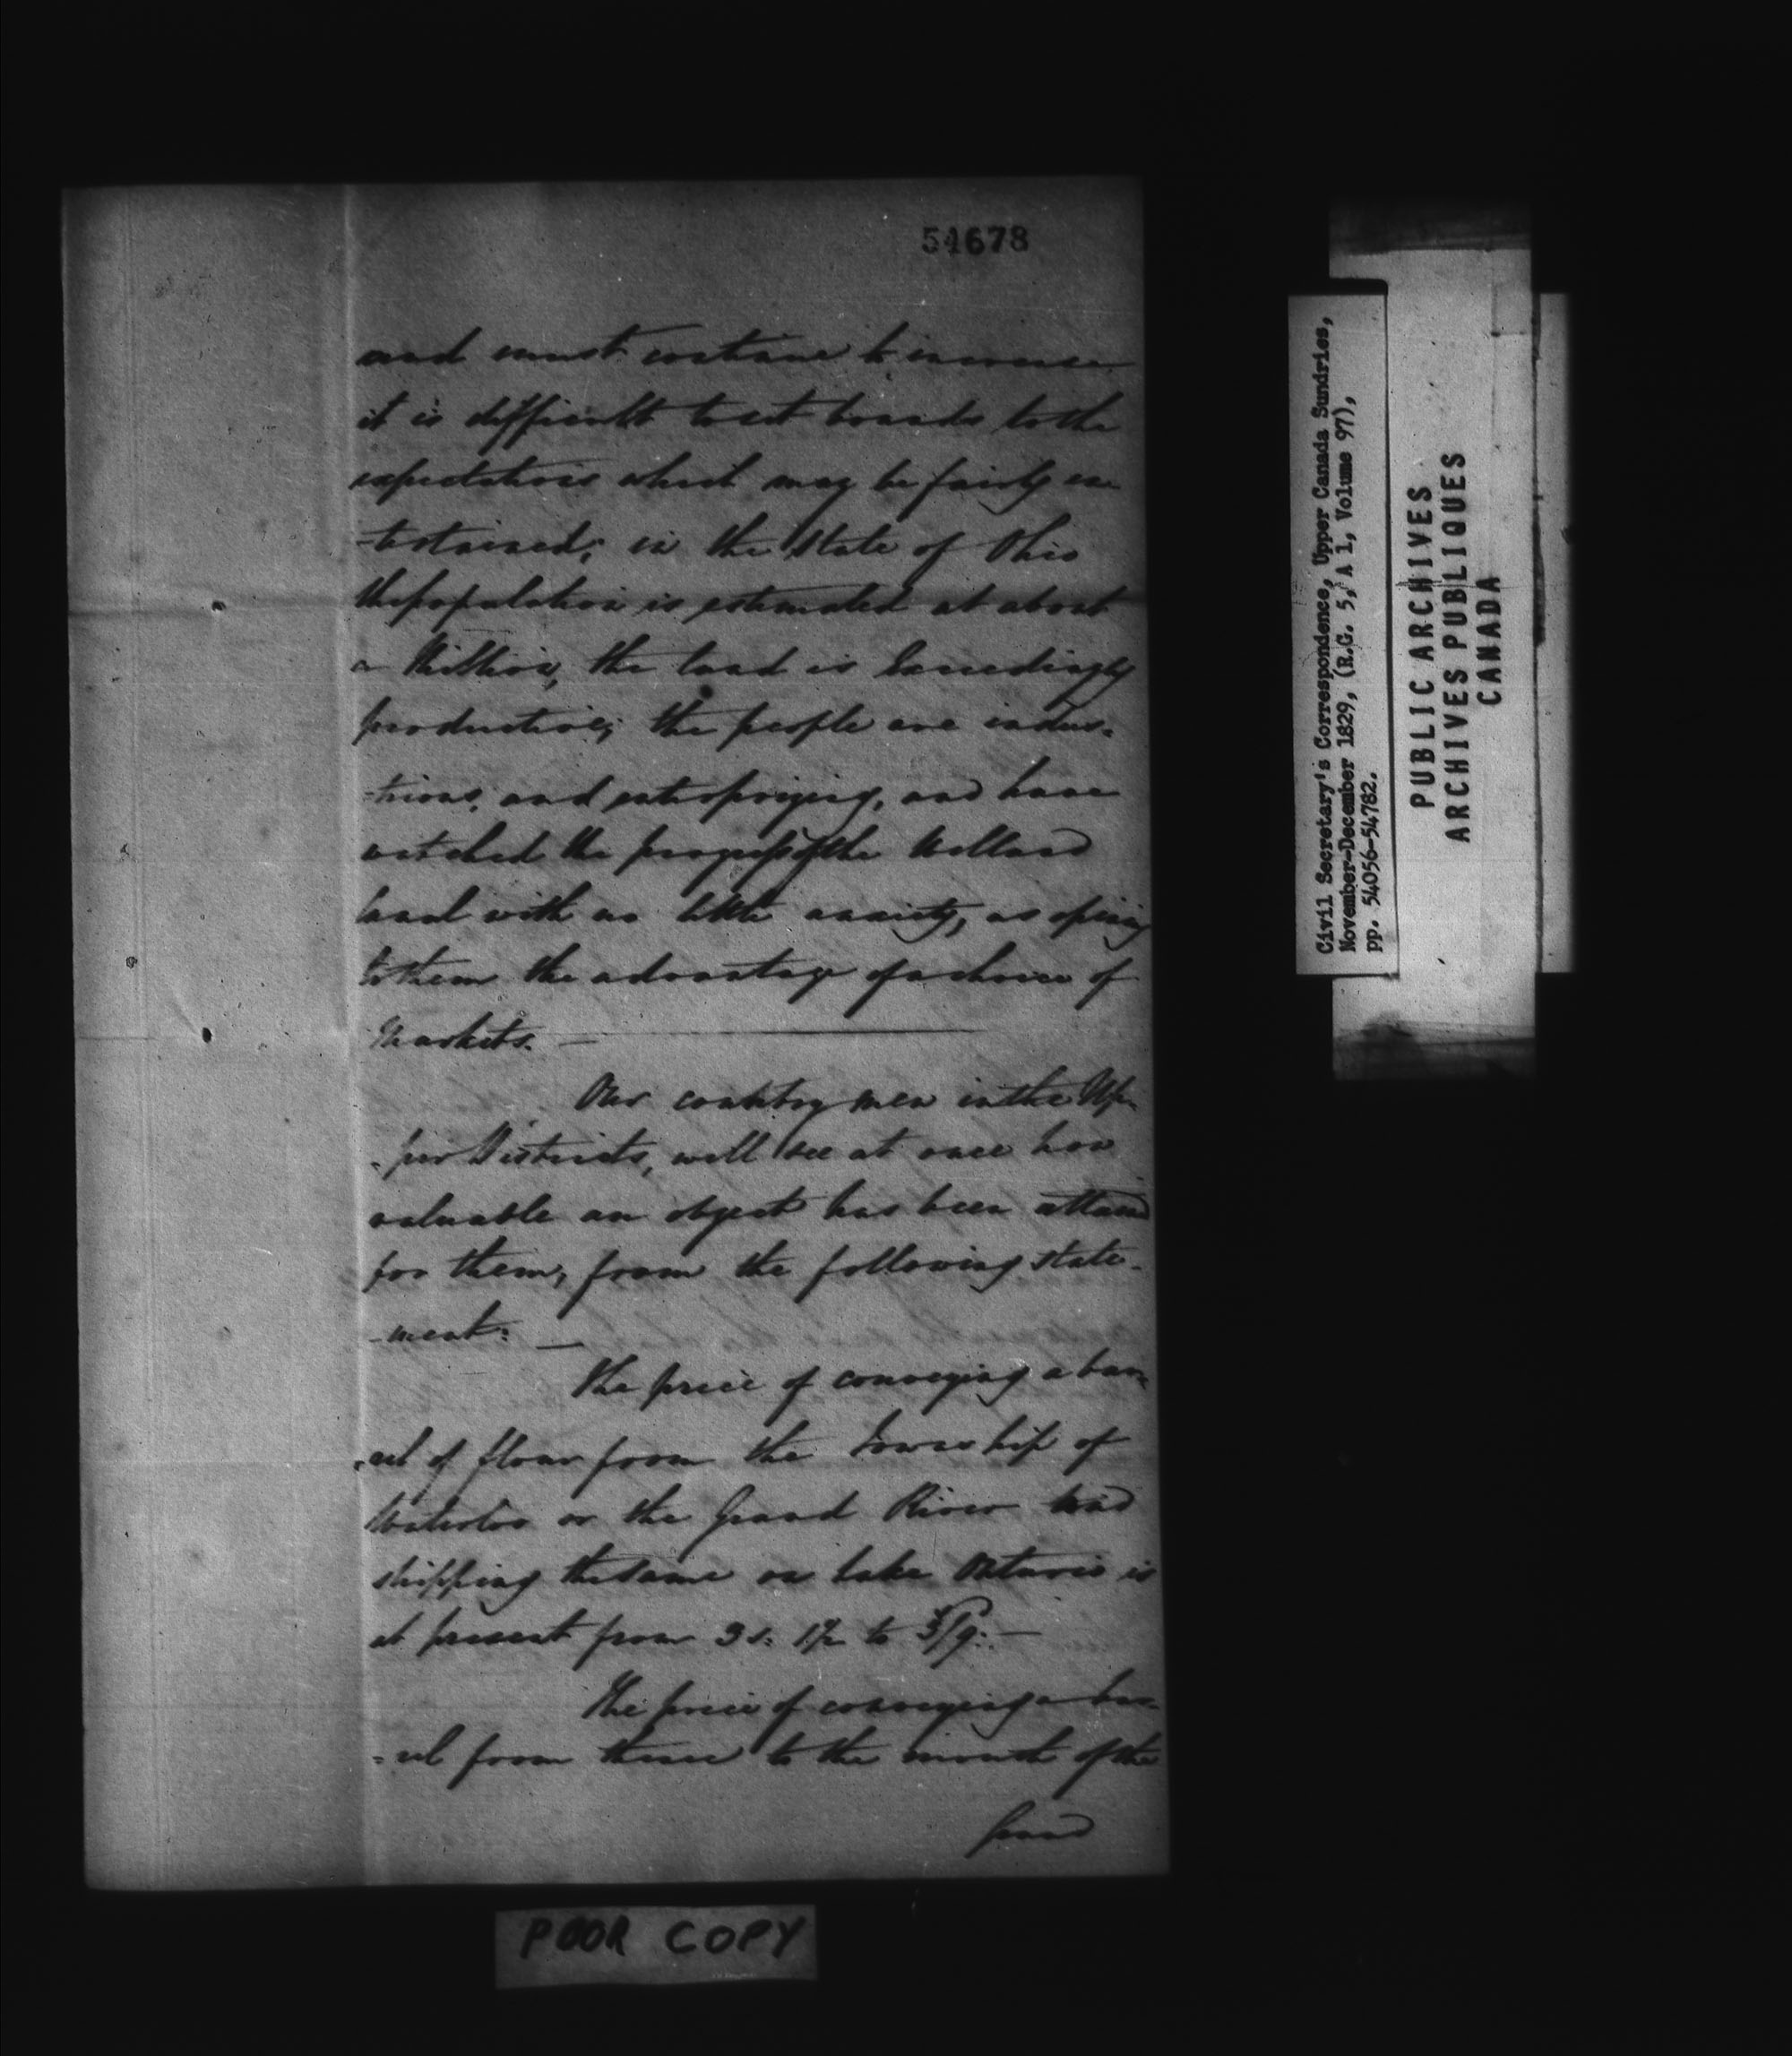 54678
and must continue to increase
it is difficult to set bounds to the
expectations which may be fairly en-
-tertained; in the State of Ohio
the population is estimated at about
a Million, the land is Exceedingly
productive; the people are indus-
-trious, and enterprizing, and have
watched the progress of the Welland
Canal with no little anxiety, as opening
to them the advantage of a choice of
Markets. —
Our countrymen in the Up-
-per Districts, will see at once how
valuable an object has been attained
for them, from the following state-
-ment: —
The price of conveying a bar-
-rel of flour from the Township of
Waterloo on the Grand River and
shipping the same on Lake Ontario is
at present from 3s. 1½ to 3/9. —
The price of conveying a bar-
-rel from thence to the mouth of the
Grand
POOR COPY
Civil Secretary's Correspondence, Upper Canada Sundries,
November-December 1829, (R.G. 5, A 1, Volume 97),
pp. 54056-54782.
PUBLIC ARCHIVES
ARCHIVES PUBLIQUES
CANADA